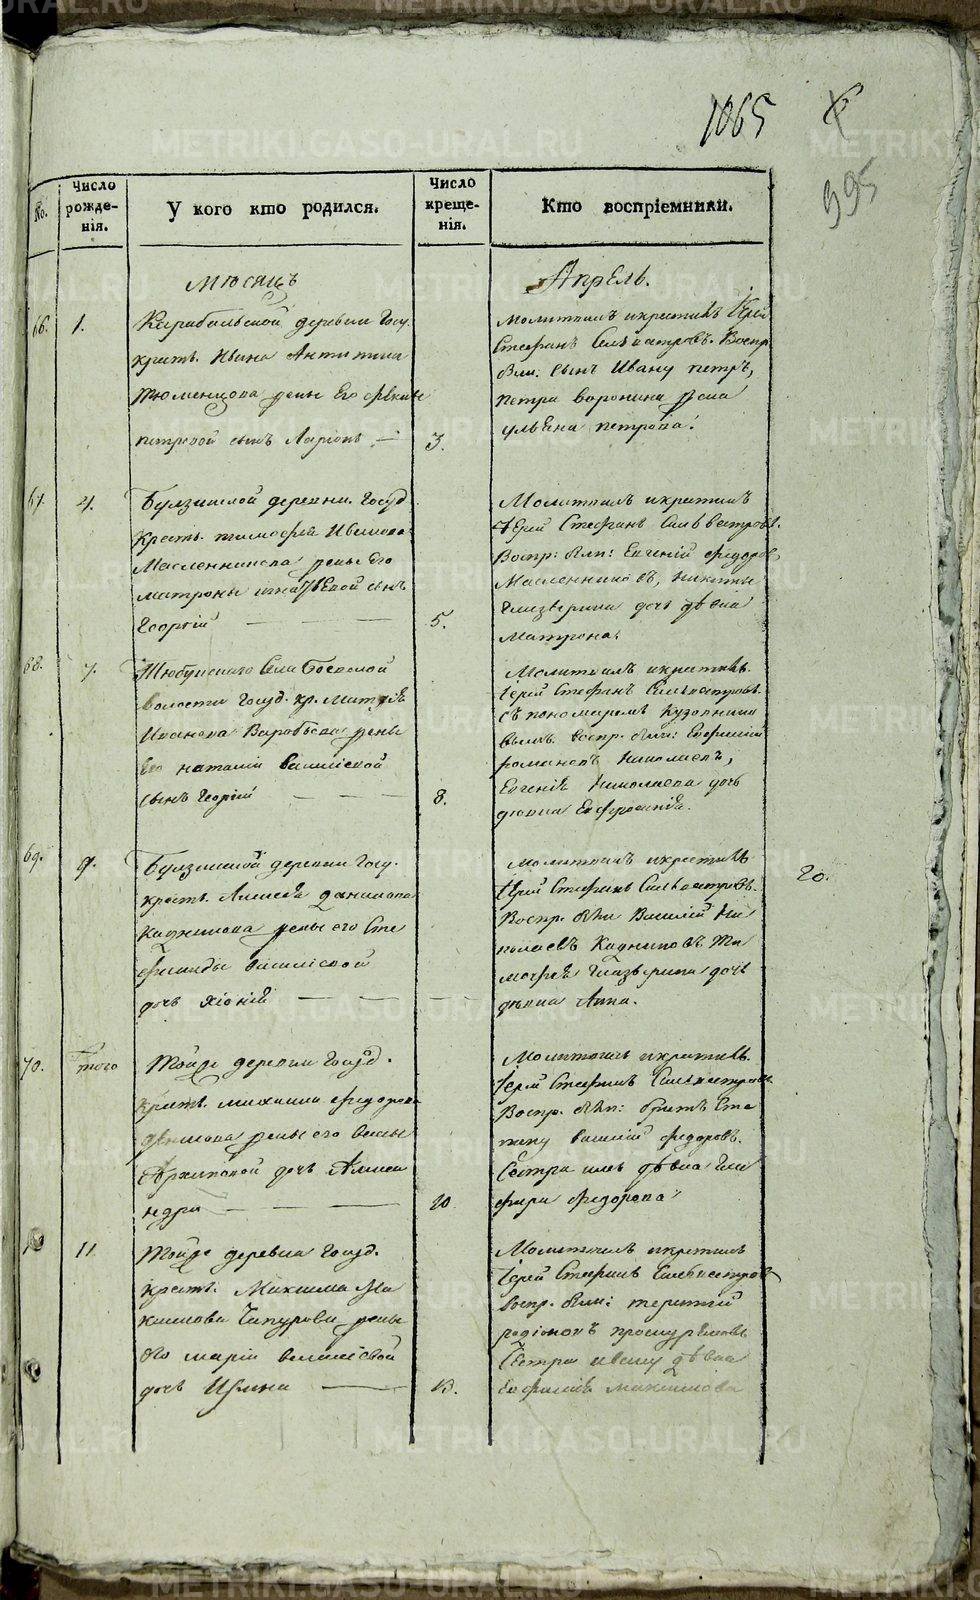 1065
595
No.
Число рожде-
нія.
У кого кто родился.
Число креще-
нія.
Кто воспріемники.
Мѣсяцъ
Апрель.
66.
1.
Карабольской деревни Госу.
крест. Ивана Антипина
Тюменцова жены его Феклы
петровой сынъ Ларіонъ —
3.
Молитвилъ и крестилъ Іерей
Стефанъ Сельвестровъ. Воспр.
были: сынъ Ивану петръ,
петра воронина жена
ульяна петрова.
67.
4.
Булзинской деревни. Госуд
Крест. тимофея Иванова
Масленникова жены его
матроны игнатьевой сынъ
Георгій — — —
5.
Молитвилъ и крестилъ
Іерей Стефанъ Сельвестровъ.
Воспр: были: Евгеній федоров
Масленниковъ, никиты
дочь дѣвка
Матрона.
68.
7.
Тюбукскаго села Боевской
волости Госуд. кр.
Иванова Воробьева жены
его наталіи василіевой
сынъ Георгій — — —
8.
Молитвилъ и крестилъ
Іерей Стефанъ Сельвестровъ.
съ пономаремъ
воспр. были:
романовъ николаевъ,
Евгенія Николаева дочь
дѣвка Евфросинія.
69.
9.
Булзинской деревни Госу.
крест. Алексея данилова
Кадникова жены его Сте
фаниды василіевой
дочь Хіонія — — — —
20.
Молитвилъ и крестилъ
Іерей Стефанъ Сельвестровъ.
Воспр. были Василій Ни
колаевъ Кадниковъ Ти
мофея дочь
дѣвка Анна.
70.
того
Тойже деревни Госуд.
крест. михаила Федорова
жены его
Архиповой дочь Алекса
ндра — — —
10
Молитвилъ и крестилъ
Іерей Стефанъ Сельвестровъ
Воспр. были: братъ Сте
пану василій федоровъ.
Сестра ихъ дѣвка Гли
кира федорова
11
Тойже деревни Госуд.
крест: Максима Ма
ксимова Чапурова жены
его маріи василіевой
дочь Ирина —
13.
Молитвилъ и крестилъ
Іерей Стефанъ Сельвестров
воспр. были: терентій
родіоновъ
Сестра дѣвка
Евфимія максимова
METRIKI.GASO-URAL.RU